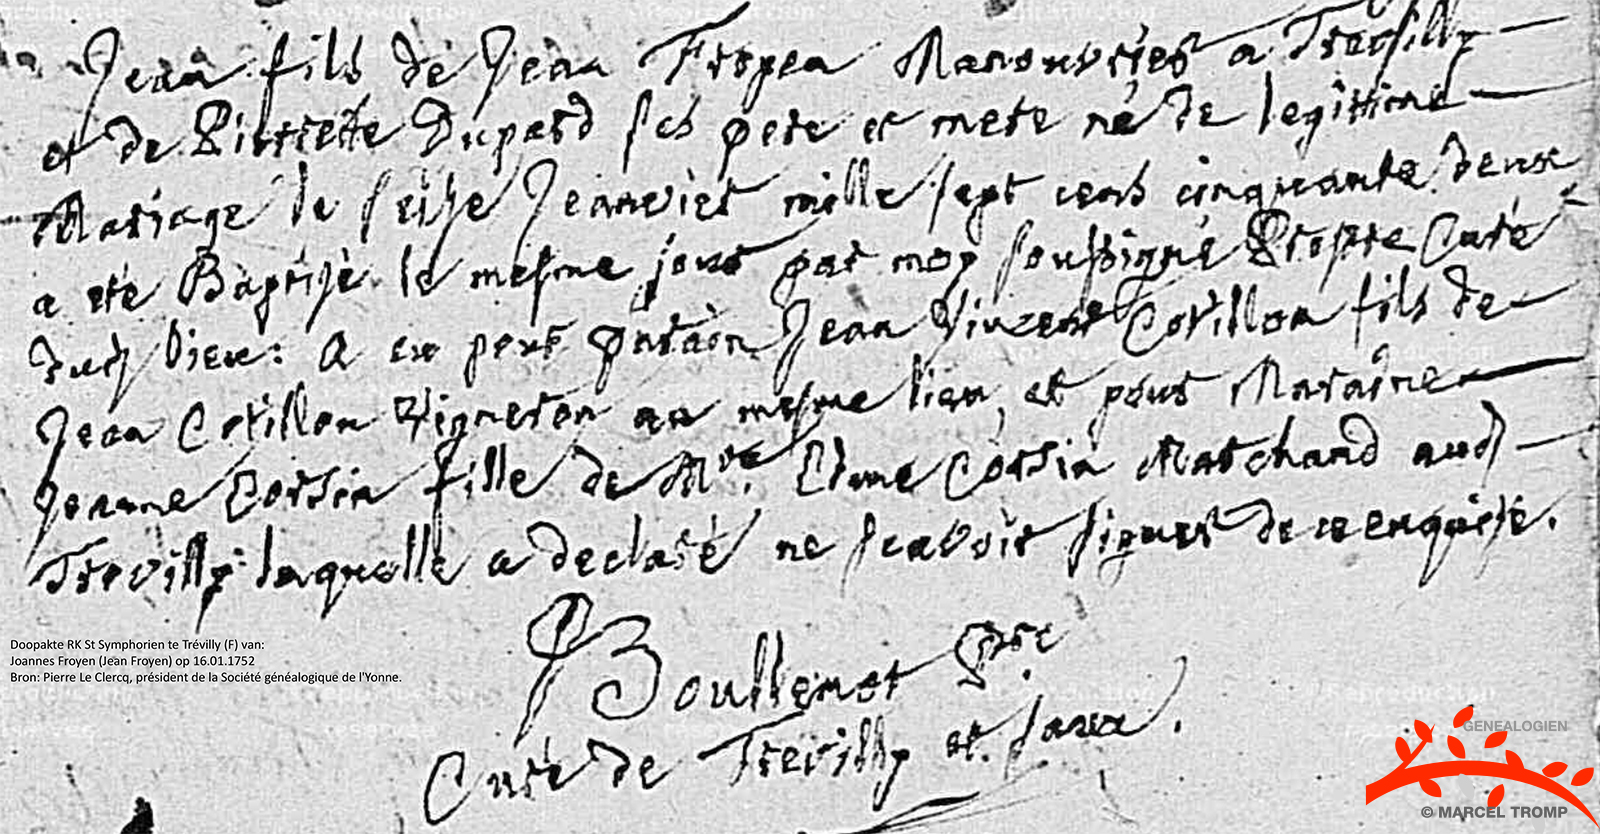 Jean fils de Jean Fropen Manouvrier a Trevilly
et de Pierrette Dupard ses pere et mere né de legitime
Mariage le seize Jenevier mille sept cens cinquante deux
a eté Baptisé le mesme jour par moy soussigné Prestre Curé
dud lieu: A eu pour parain Jean Vincent Covillon fils de
Jean Covillon Vigneron au mesme lieu, et pour Maraine
Jeanne Corsin fille de Mre. Edme Corsin Marchand aud
Trevilly laquelle a declaré ne scavoir signer de ce enquise.
Boullenot Ptre
Curé de Trevilly et
Doopakte RK St Symphorien te Trévilly (F) van:
Joannes Froyen (Jean Froyen) op 16.01.1752
Bron: Pierre Le Clercq, président de la Société généalogique de l'Yonne.
GENEALOGIEN
© MARCEL TROMP